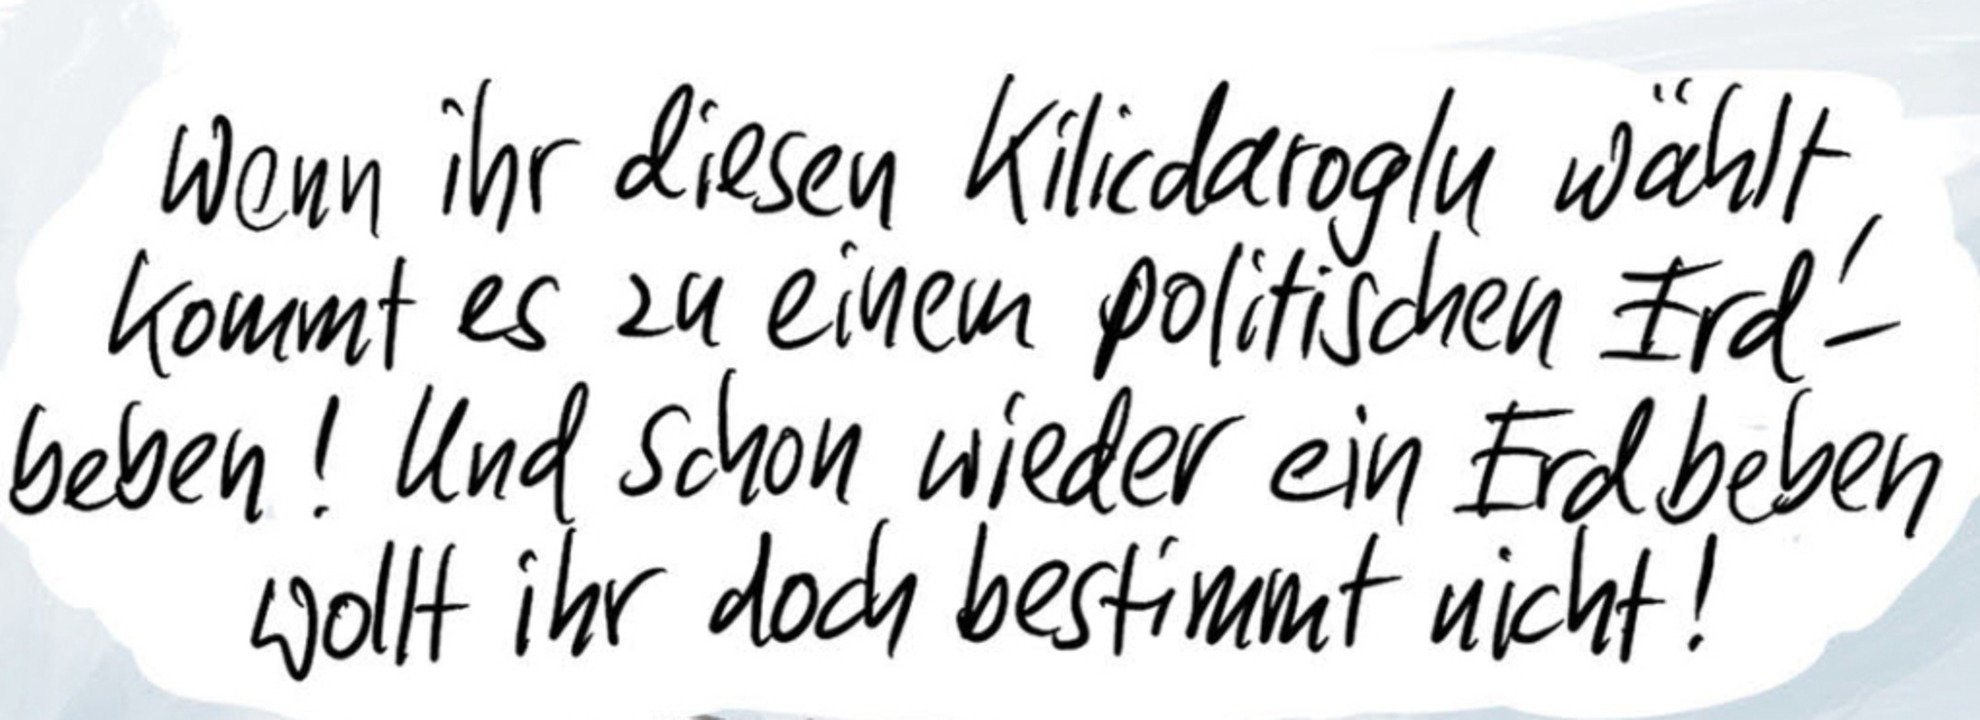 Wenn ihr diesen Kilicdaroglu wählt,
kommt es zu einem politischen Erd-
beben! Und schon wieder ein Erdbeben
wollt ihr doch bestimmt nicht!